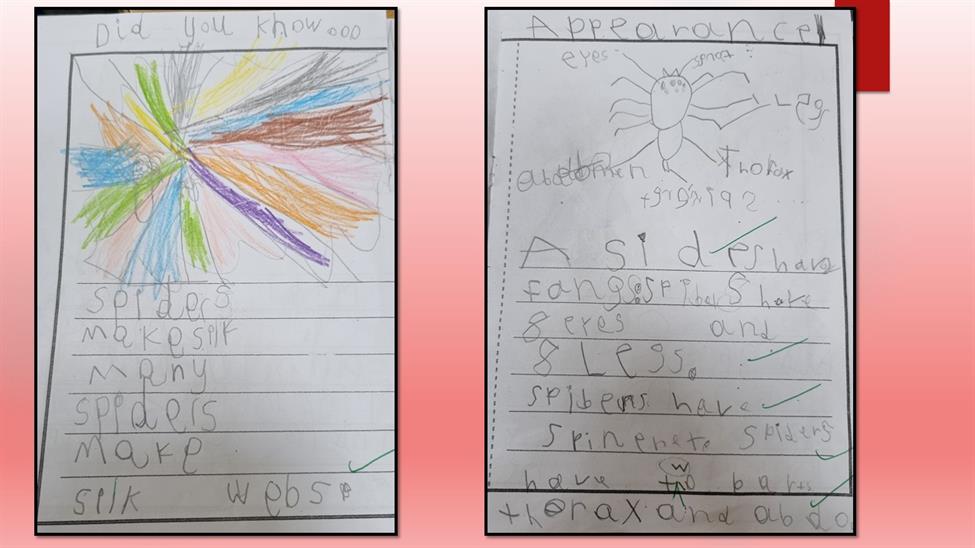 Did you know...
spiders
make silk
many
spiders
make
silk webs
Appearance
eyes
Leg
thorax
A sides have
fangs. spibers have
8 eyes and
8 Legs.
spibers have
spinerete spiders
have two parts
thorax and abdo